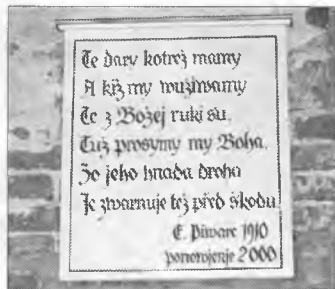 Te dary kotrež mamy
A kiž my wužiwamy
Te z Božej ruki su,
Tuž prosymy my Boha,
Zo jeho hnada droha
Je zwarnuje tež před škodu
E. Pjwarc 1910
ponowjenje 2000